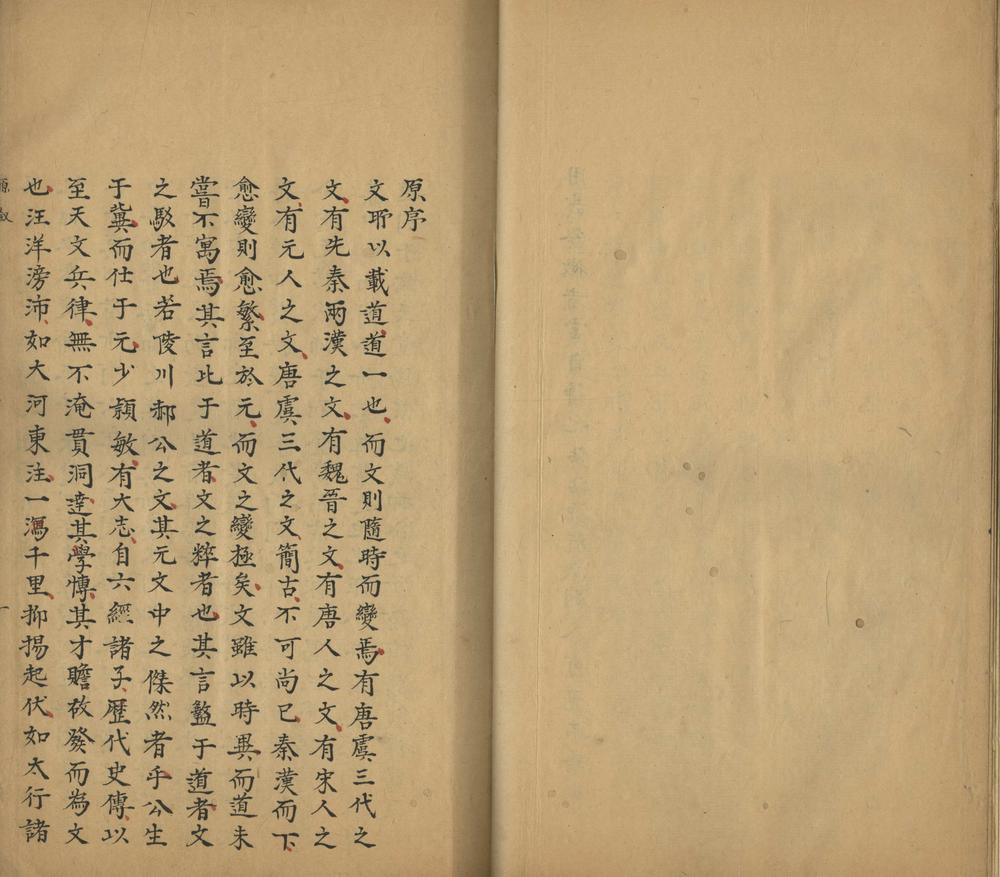 原序
文所以載道道一也而文則隨時而變焉有唐虞三代之
文有先秦兩漢之文有魏晉之文有唐人之文有宋人之
文有元人之文唐虞三代之文簡古不可尚已秦漢而下
愈變則愈繁至於元而文之變極矣文雖以時異而道未
嘗不寓焉其言比于道者文之粹者也其言盭于道者文
之駁者也若陵川郝公之文其元文中之傑然者乎公生
于冀而仕于元少頴敏有大志自六經諸子歷代史傳以
至天文兵律無不淹貫洞達其學博其才贍故發而為文
也汪洋滂沛如大河東注一瀉千里抑揚起伏如太行諸
原敘
一